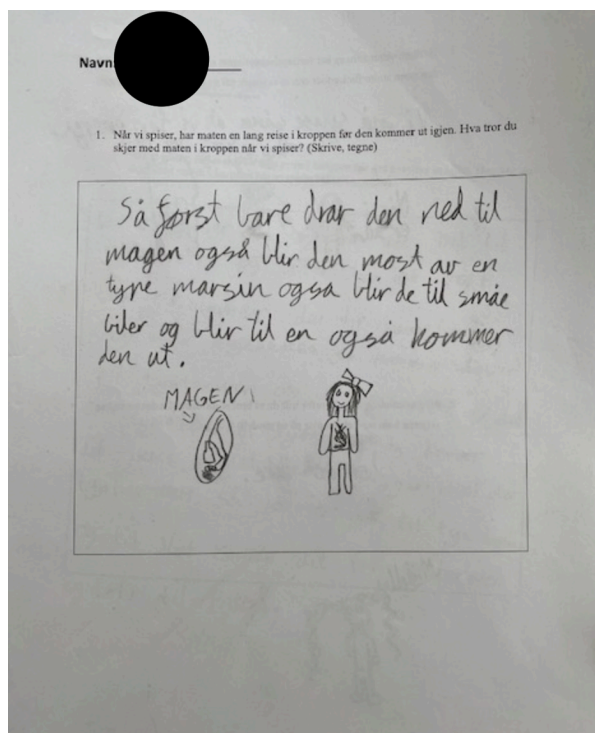 Navn:
1. Når vi spiser, har maten en lang reise i kroppen før den kommer ut igjen. Hva tror du
skjer med maten i kroppen når vi spiser? (Skrive, tegne)
Så først bare drar den ned til
magen også blir den most av en
type marsin også blir de til småe
biler og blir til en også kommer
den ut.
MAGEN!